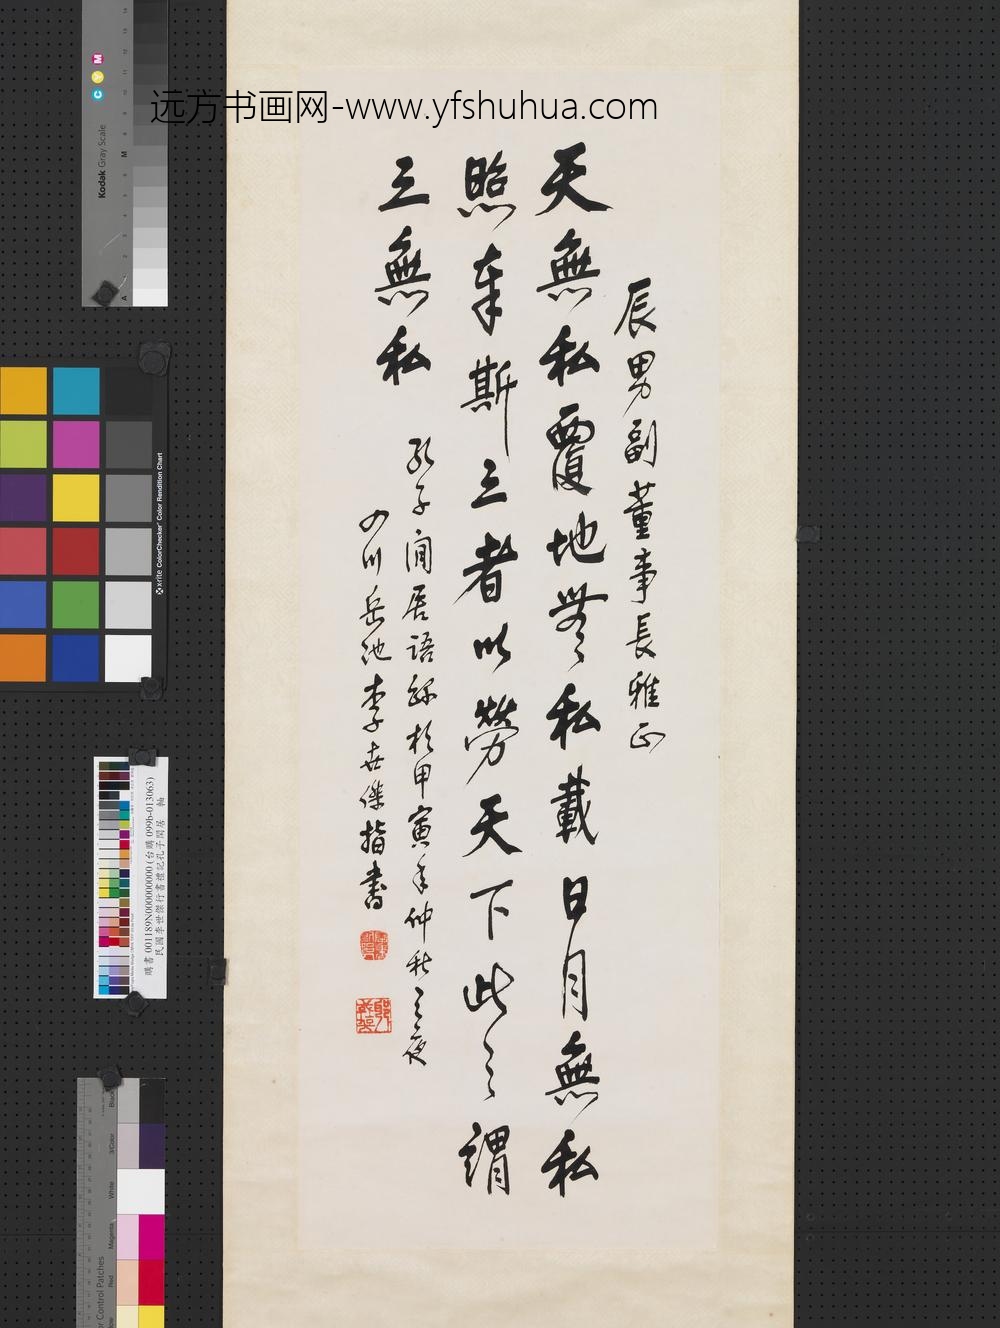 远方书画网-www.yfshuhua.com
辰男副董事長雅正
天無私覆地無私載日月無私
照奉斯三者以勞天下此之謂
三無私
孔子閒居語錄於甲寅年仲秋之夜
四川岳池李世傑指書
Kodak Gray Scale
C Y M
x-rite ColorChecker Color Rendition Chart
購書 001189N000000000 (台購 099b-013063)
民國李世傑行書禮記孔子閒居 軸
Black
3/Color
White
Magenta
Red
or Control Patches